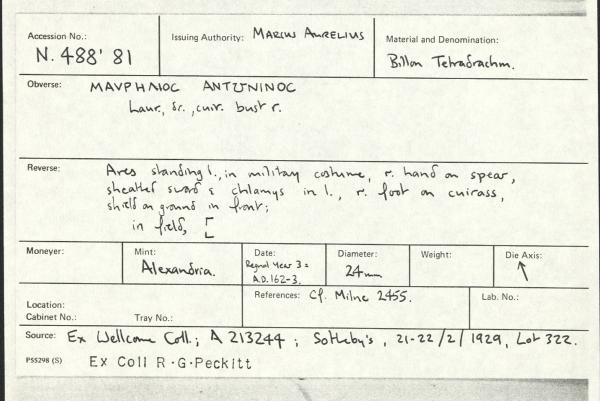 Accession No.:
N. 488' 81
Issuing Authority: MARIUS AURELIUS
Material and Denomination:
Billon Tetradrachm.
Obverse: MAVPHΛIOC ANTΩNINOC
Laur., dr., cuir. bust r.
Reverse: Ares standing l., in military costume, r. hand on spear,
sheathed sword & chlamys in l., r. foot on cuirass,
shield on ground in front;
in field, [
Moneyer:
Mint:
Alexandria.
Date:
Regnal Year 3 =
A.D. 162-3.
Diameter:
24mm
Weight:
Die Axis:
↑
Location:
Cabinet No.: Tray No.:
References: Cf. Milne 2455.
Lab. No.:
Source: Ex Wellcome Coll.; A 213244; Sotheby's, 21-22/2/1929, Lot 322.
P55298 (S) Ex Coll R.G.Peckitt